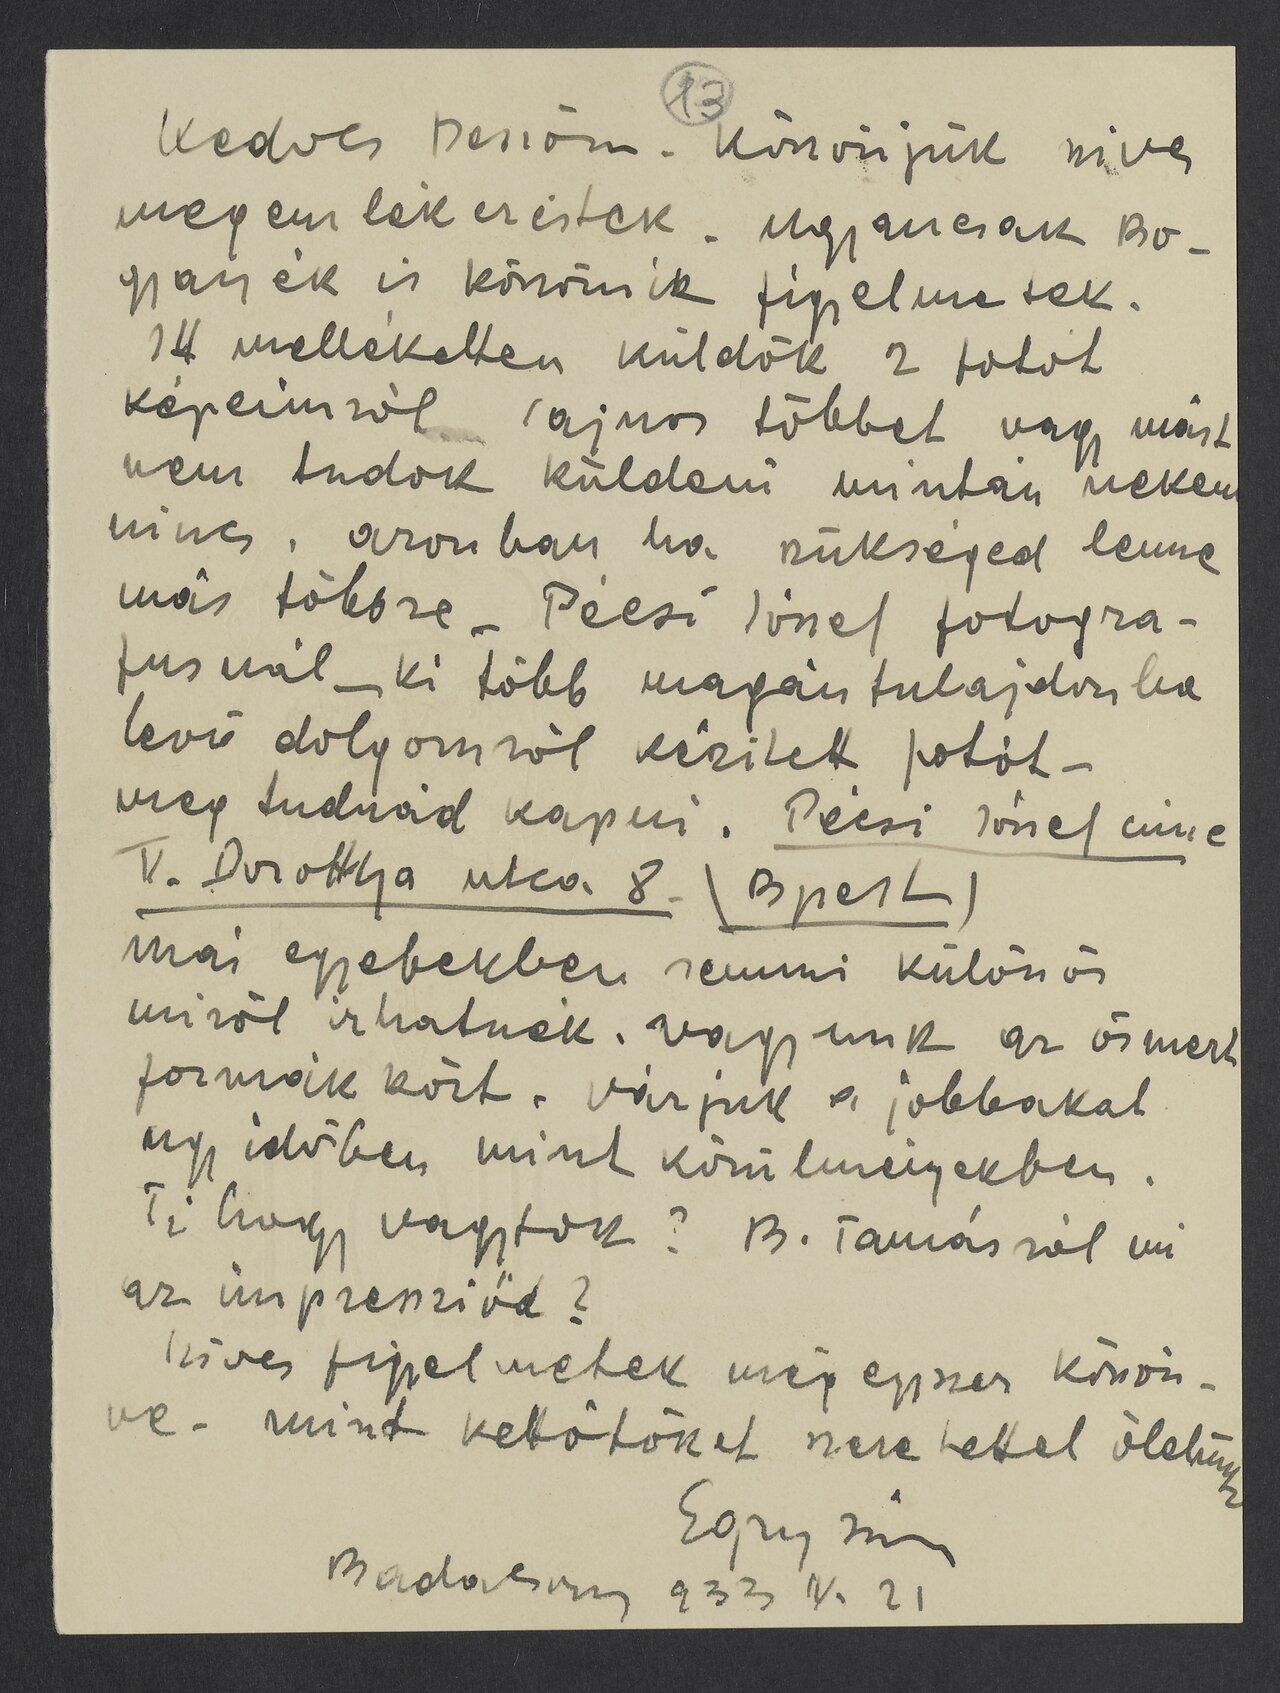 13
Kedves Dezsőm. Köszönjük szíves
megemlékezéstek. Ugyancsak Bo-
gyayék is köszönik figyelmetek.
Itt mellékelten küldök 2 fotót
képeimről sajnos többet vagy mást
nem tudok küldeni mintán nekem
nincs, azonban ha szükséged lenne
más többre – Pécsi József fotogra-
fusnál – ki több magántulajdonba
levő dolgomról készitett fotót –
meg tudnád kapni. Pécsi József cime
V. Dorottya utca 8. (Bpest)
mai egyebekben semmi különös
miről irhatnék. Vagyunk az ösmert
formák közt. Várjuk a jobbakat
ugy időben mint körülményekben.
Ti hogy vagytok? B. Tamásról mi
az impressziód?
Szives figyelmetek még egyszer köszön-
ve – mint kettőtöket szeretettel ölelünk
Egry
Badacsony 933 IV. 21